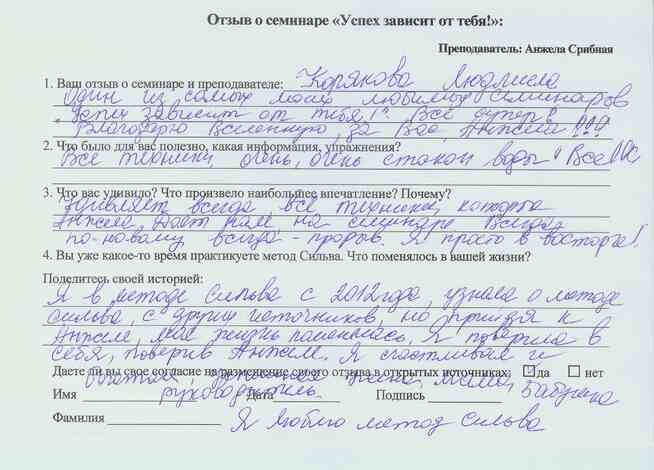 Отзыв о семинаре «Успех зависит от тебя!»:
Преподаватель: Анжела Срибная
1. Ваш отзыв о семинаре и преподавателе: Корякова Людмила
Один из самых моих любимых семинаров
"Успех зависит от тебя!". Всё супер!
Благодарю Вселенную, за Вас, Анжела!!!
2. Что было для вас полезно, какая информация, упражнения?
Все техники, очень, очень стакан воды. Все
3. Что вас удивило? Что произвело наибольшее впечатление? Почему?
Удивляет всегда все техники, которые
Анжела дает нам, на семинаре Всегда
по-новому всегда - прорыв. Я просто в восторге!
4. Вы уже какое-то время практикуете метод Сильва. Что поменялось в вашей жизни?
Поделитесь своей историей:
Я в методе Сильва с 2012 года, узнала о методе
Сильва, с других источников, но придя к
Анжеле, моя жизнь поменялась. Я поверила в
себя, поверив Анжеле. Я счастливая и
Даете ли вы свое согласие на размещение своего отзыва в открытых источниках: да нет
богатая, жена, мама, бабушка
руководитель.
Имя Дата Подпись
Фамилия Я люблю метод Сильва